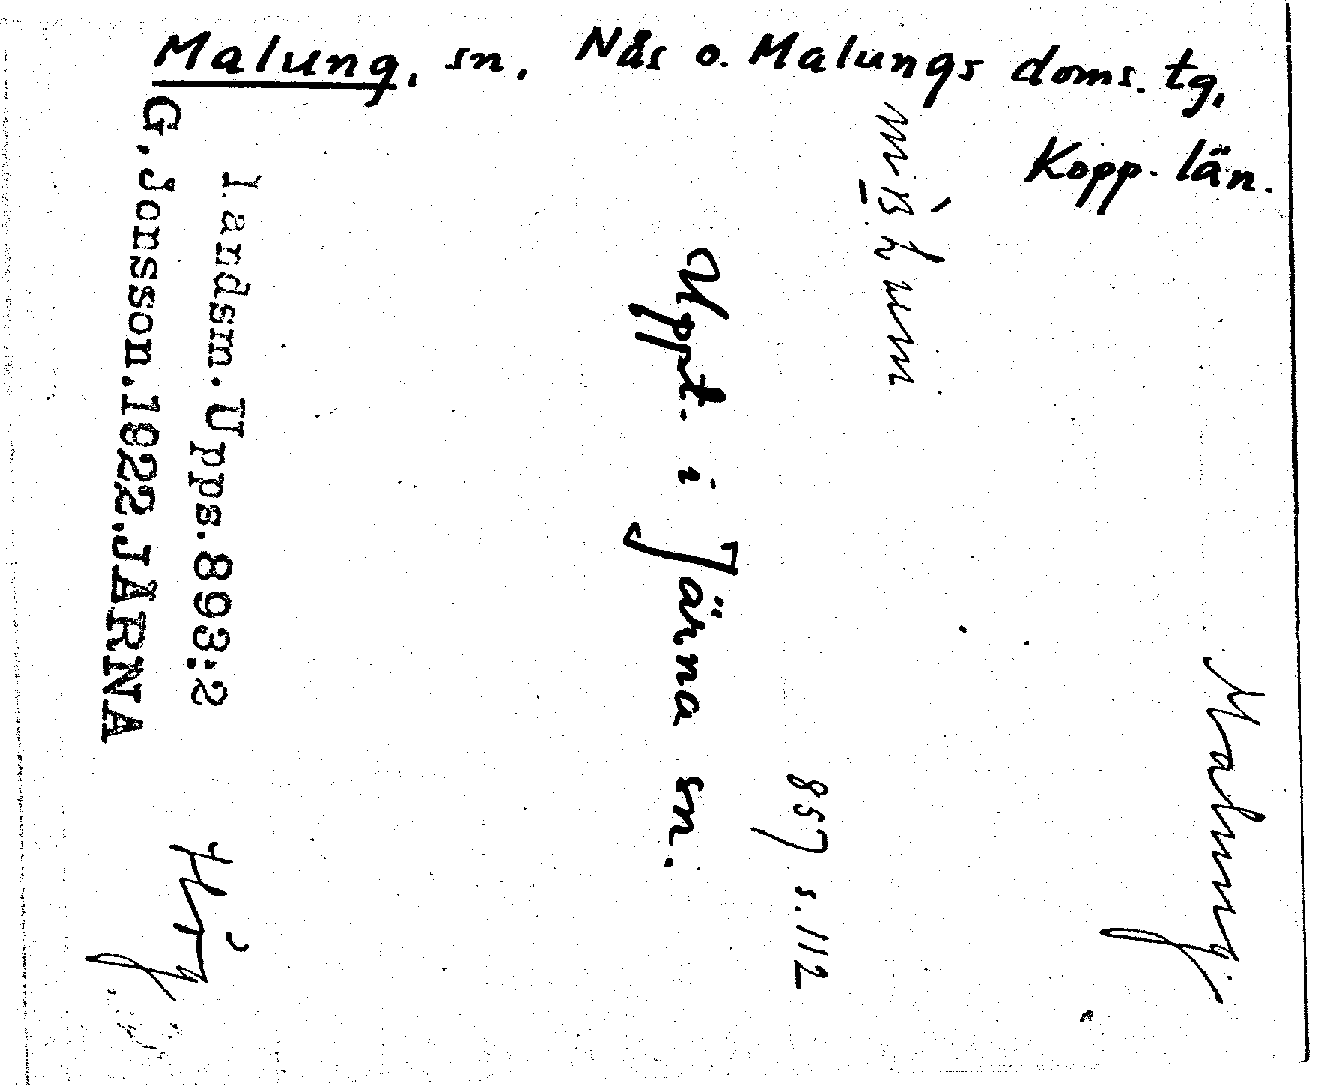 Malung, sn, Nås o. Malungs doms. tg,
Kopp. län.
Malung.
857 s. 112
Uppt. i Järna sn.
Landsm. Upps. 893:2
G. Jonsson. 1922. JÄRNA